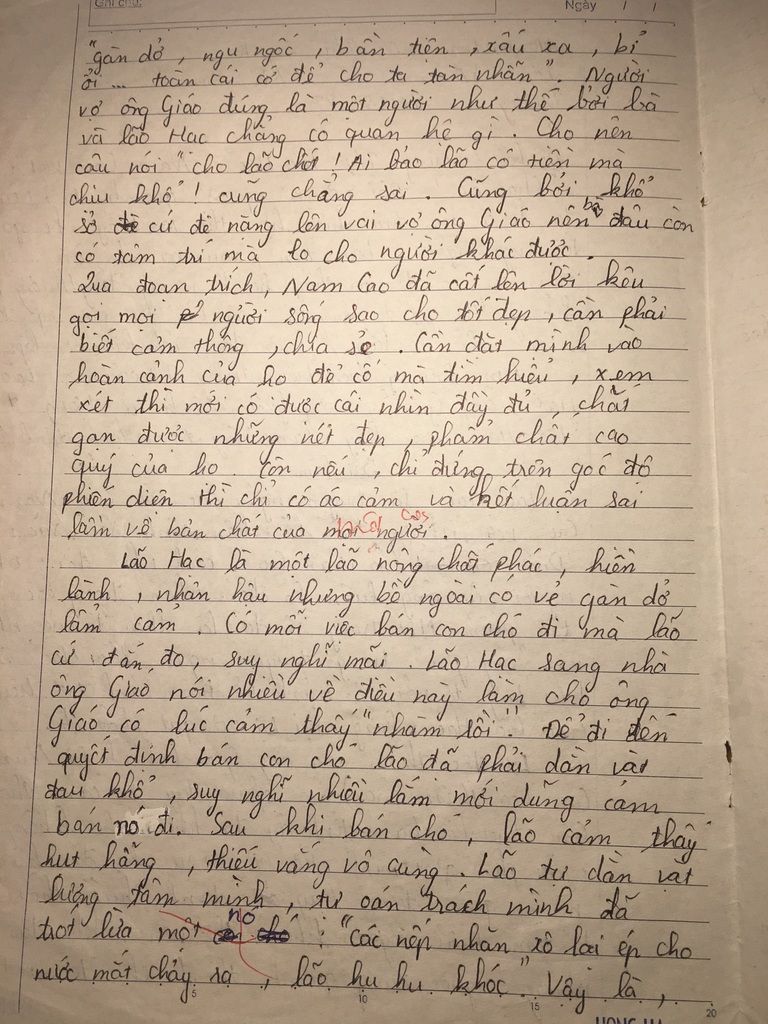 Ghi chú:
Ngày / /
"gàn dở, ngu ngốc, bần tiện, xấu xa, bỉ
ổi... toàn cái cớ để cho ta tàn nhẫn". Người
vợ ông Giáo đúng là một người như thế bởi bà
và lão Hạc chẳng có quan hệ gì. Cho nên
câu nói "cho lão chết! Ai bảo lão có tiền mà
chịu khổ! cũng chẳng sai. Cũng bởi khổ
sở cứ đè nặng lên vai vợ ông Giáo nên bà đâu còn
có tâm trí mà lo cho người khác được.
Qua đoạn trích, Nam Cao đã cất lên lời kêu
gọi mọi người sống sao cho tốt đẹp, cần phải
biết cảm thông, chia sẻ. Cần đặt mình vào
hoàn cảnh của họ để cố mà tìm hiểu, xem
xét thì mới có được cái nhìn đầy đủ, chắt
gạn được những nét đẹp, phẩm chất cao
quý của họ. Còn nếu, chỉ đứng trên góc độ
phiến diện thì chỉ có ác cảm và kết luận sai
lầm về bản chất của mọi người.
Lão Hạc là một lão nông chất phác, hiền
lành, nhân hậu nhưng bề ngoài có vẻ gàn dở
lẩm cẩm. Có mỗi việc bán con chó đi mà lão
cứ đắn đo, suy nghĩ mãi. Lão Hạc sang nhà
ông Giáo nói nhiều về điều này làm cho ông
Giáo có lúc cảm thấy "nhàm rồi". Để đi đến
quyết định bán con chó lão đã phải dằn vặt
đau khổ, suy nghĩ nhiều lắm mới dũng cảm
bán nó đi. Sau khi bán chó, lão cảm thấy
hụt hẫng, thiếu vắng vô cùng. Lão tự dằn vặt
lương tâm mình, tự oán trách mình đã
trót lừa một nó : "các nếp nhăn xô lại ép cho
nước mắt chảy ra, lão hu hu khóc". Vậy là,
5 10 15 20